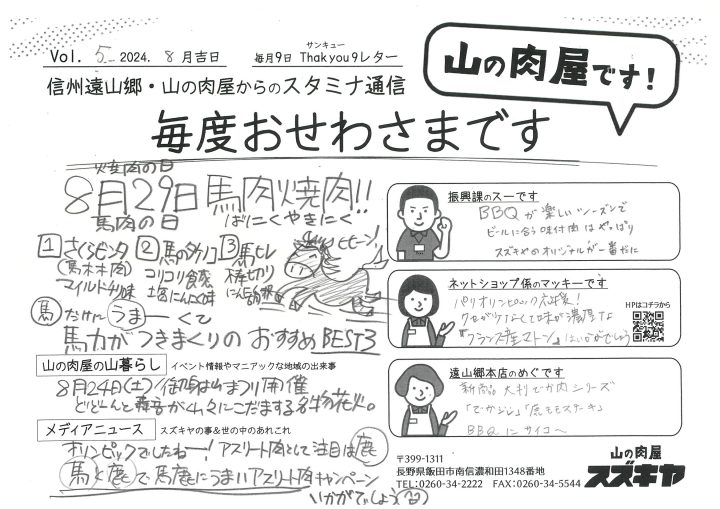 Vol. 5 2024. 8月吉日
サンキュー
毎月9日 Thakyou9レター
信州遠山郷・山の肉屋からのスタミナ通信
山の肉屋です!
毎度おせわさまです
焼肉の日
8月29日馬肉焼肉!!
馬肉の日 ばにくやきにく
1 さくらビンタ 2 馬のタケノコ 3 馬ヒレ
ヒヒーン!
(馬ホホ肉) コリコリ食感 棒切り
マイルド味 塩にんにく味 にんにく
馬だけに うまーくて
馬力がつきまくりのおすすめBEST3
山の肉屋の山暮らし イベント情報やマニアックな地域の出来事
8月24日(土)御射山まつり開催
どどーんと轟音が山々にこだまする名物花火。
メディアニュース スズキヤの事&世の中のあれこれ
オリンピックでしたねー!アスリート肉として注目は鹿
馬と鹿で馬鹿にうまいアスリート肉キャンペーン
いかがでしょう
振興課のスーです
BBQが楽しいシーズンで
ビールに合う味付肉はやっぱり
スズキヤのオリジナルが一番だに
ネットショップ係のマッキーです
パリオリンピック応援!
クセがなくて味が濃厚な
『フランス産マトン』はいかがでしょう
HPはコチラから
遠山郷本店のめぐです
新商品 大判でか肉シリーズ
「でかジン」「鹿ももステーキ」
BBQにサイコー
〒399-1311
長野県飯田市南信濃和田1348番地
TEL:0260-34-2222 FAX:0260-34-5544
山の肉屋
スズキヤ